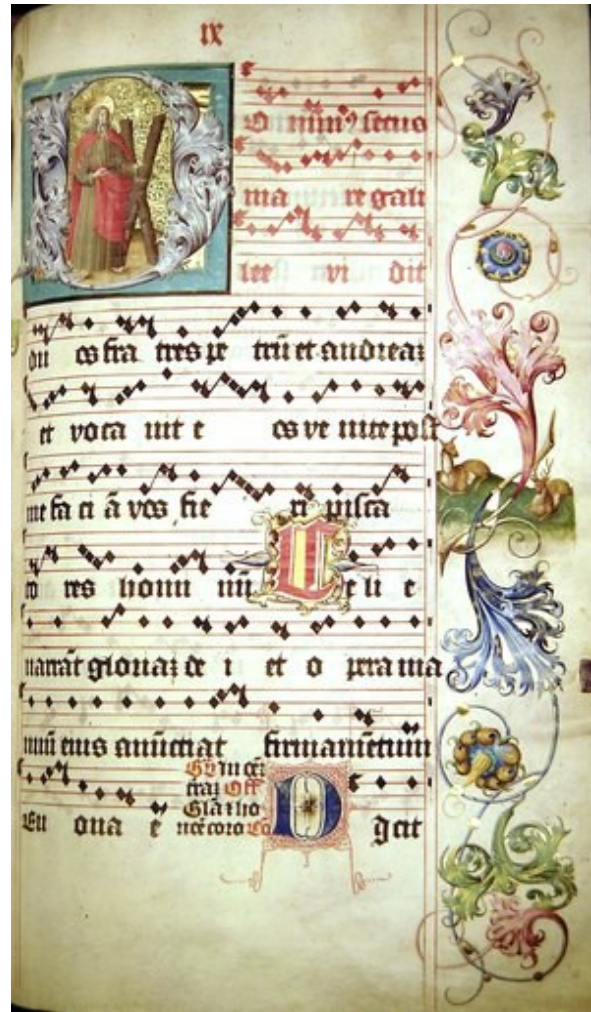 ix
Ominꝰ secus
ma re gali
lee vi dit
du os fra tres pe trū et andreaꝫ
et voca uit e os ve nite post
me fa ci ā vos fie ri pisca
to res homi nū Celi e
narrāt gloriaꝫ de i et o pera ma
nuū eius anūctiat firmamētum
Eu oua e
Off
Gla et ho
D icit